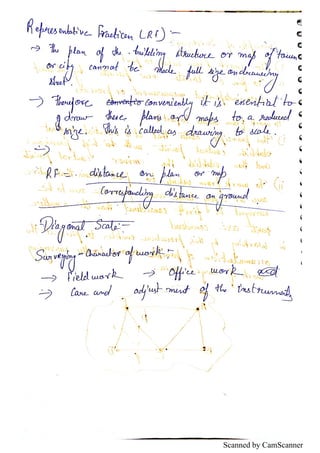 Representative Fraction (RF) :-
→ The plan of the building structure or map of town
or city cannot be made full size on drawing
sheet.
→ Therefore conveniently it is essential to
draw there plans or maps to a reduced
size. This is called as drawing to scale.
→
RF = distance on plan or map
corresponding distance on ground
Diagonal Scale:-
Surveying - Character of work :-
→ Field work → Office work
→ Care and adjustment of the instruments
Scanned by CamScanner